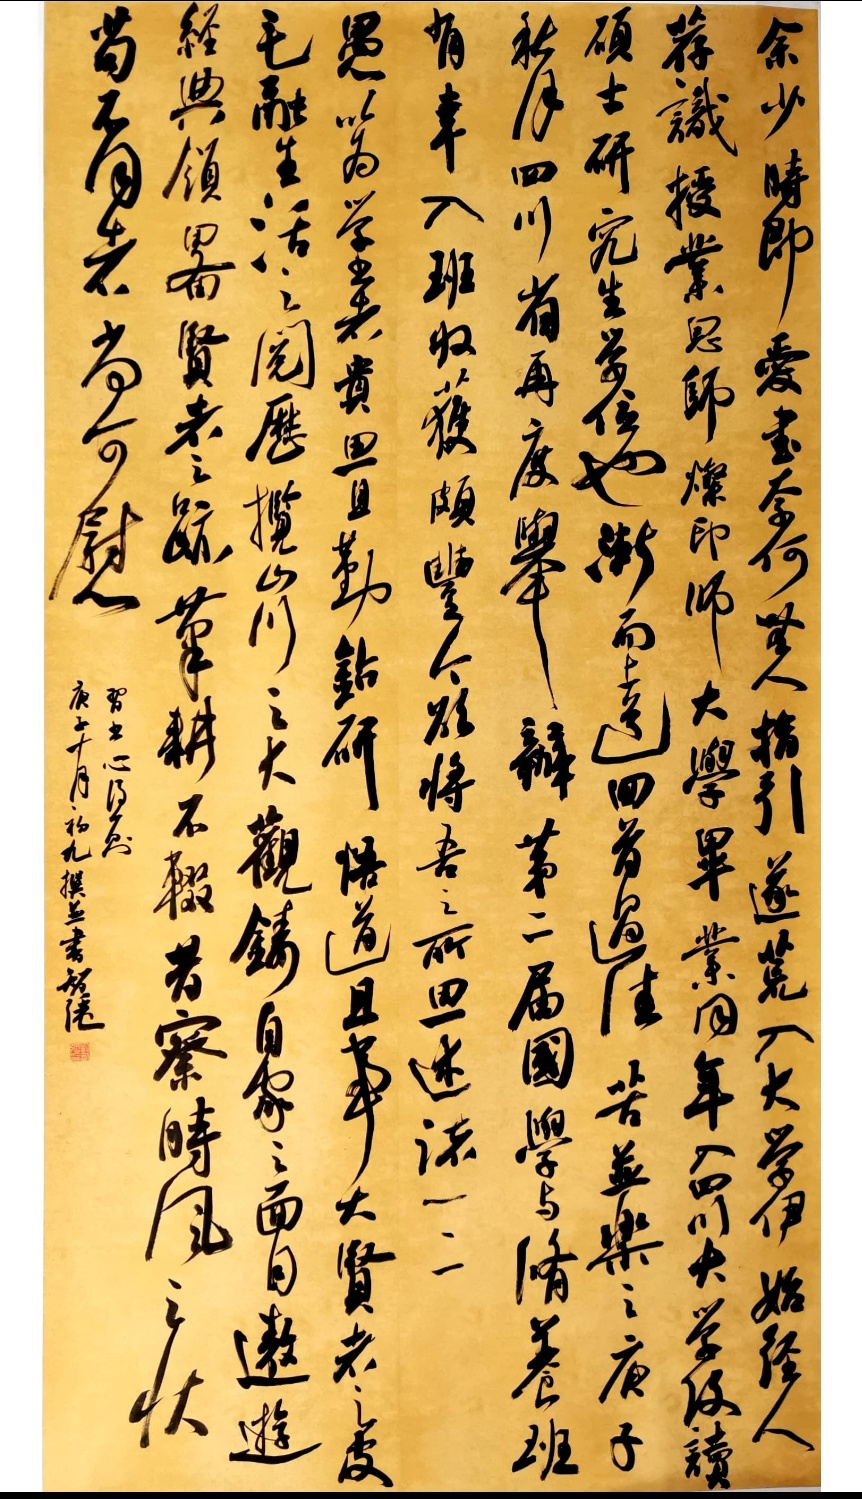 余少時即愛書奈何無人指引遂荒入大学伊始經人
荐識授業恩師燦印師大學畢業同年入四川大学攻讀
碩士研究生学位也漸而上道回首過往苦並樂之庚子
秋月四川省再度舉辦第二届國學与脩養班
有幸入班收獲頗豐今欲將吾之所思述諸一二
愚以為学書者貴思且勤鑽研悟道且事大賢者之皮
毛融生活之閲歷攬山川之大觀鑄自家之面目遨遊
經典領畧賢者之蹤筆耕不輟者察時風之狀
苟不同者尚何慰
習書心得一則
庚子十月初九撰並書